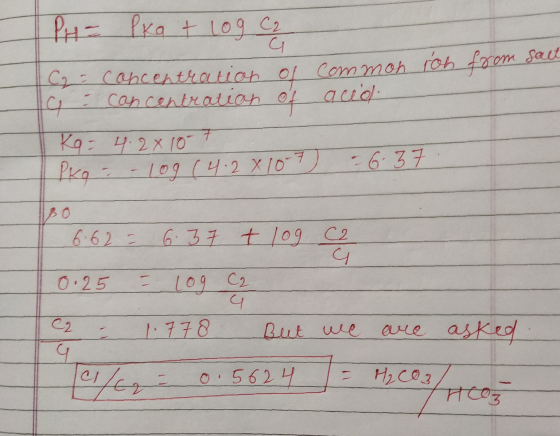 PH = PKa + log C2/C1
C2 = concentration of common ion from salt
C1 = concentration of acid.
Ka = 4.2 × 10⁻⁷
PKa = -log (4.2 × 10⁻⁷) = 6.37
so
6.62 = 6.37 + log C2/C1
0.25 = log C2/C1
C2/C1 = 1.778 But we are asked
C1/C2 = 0.5624 = H2CO3/HCO3⁻